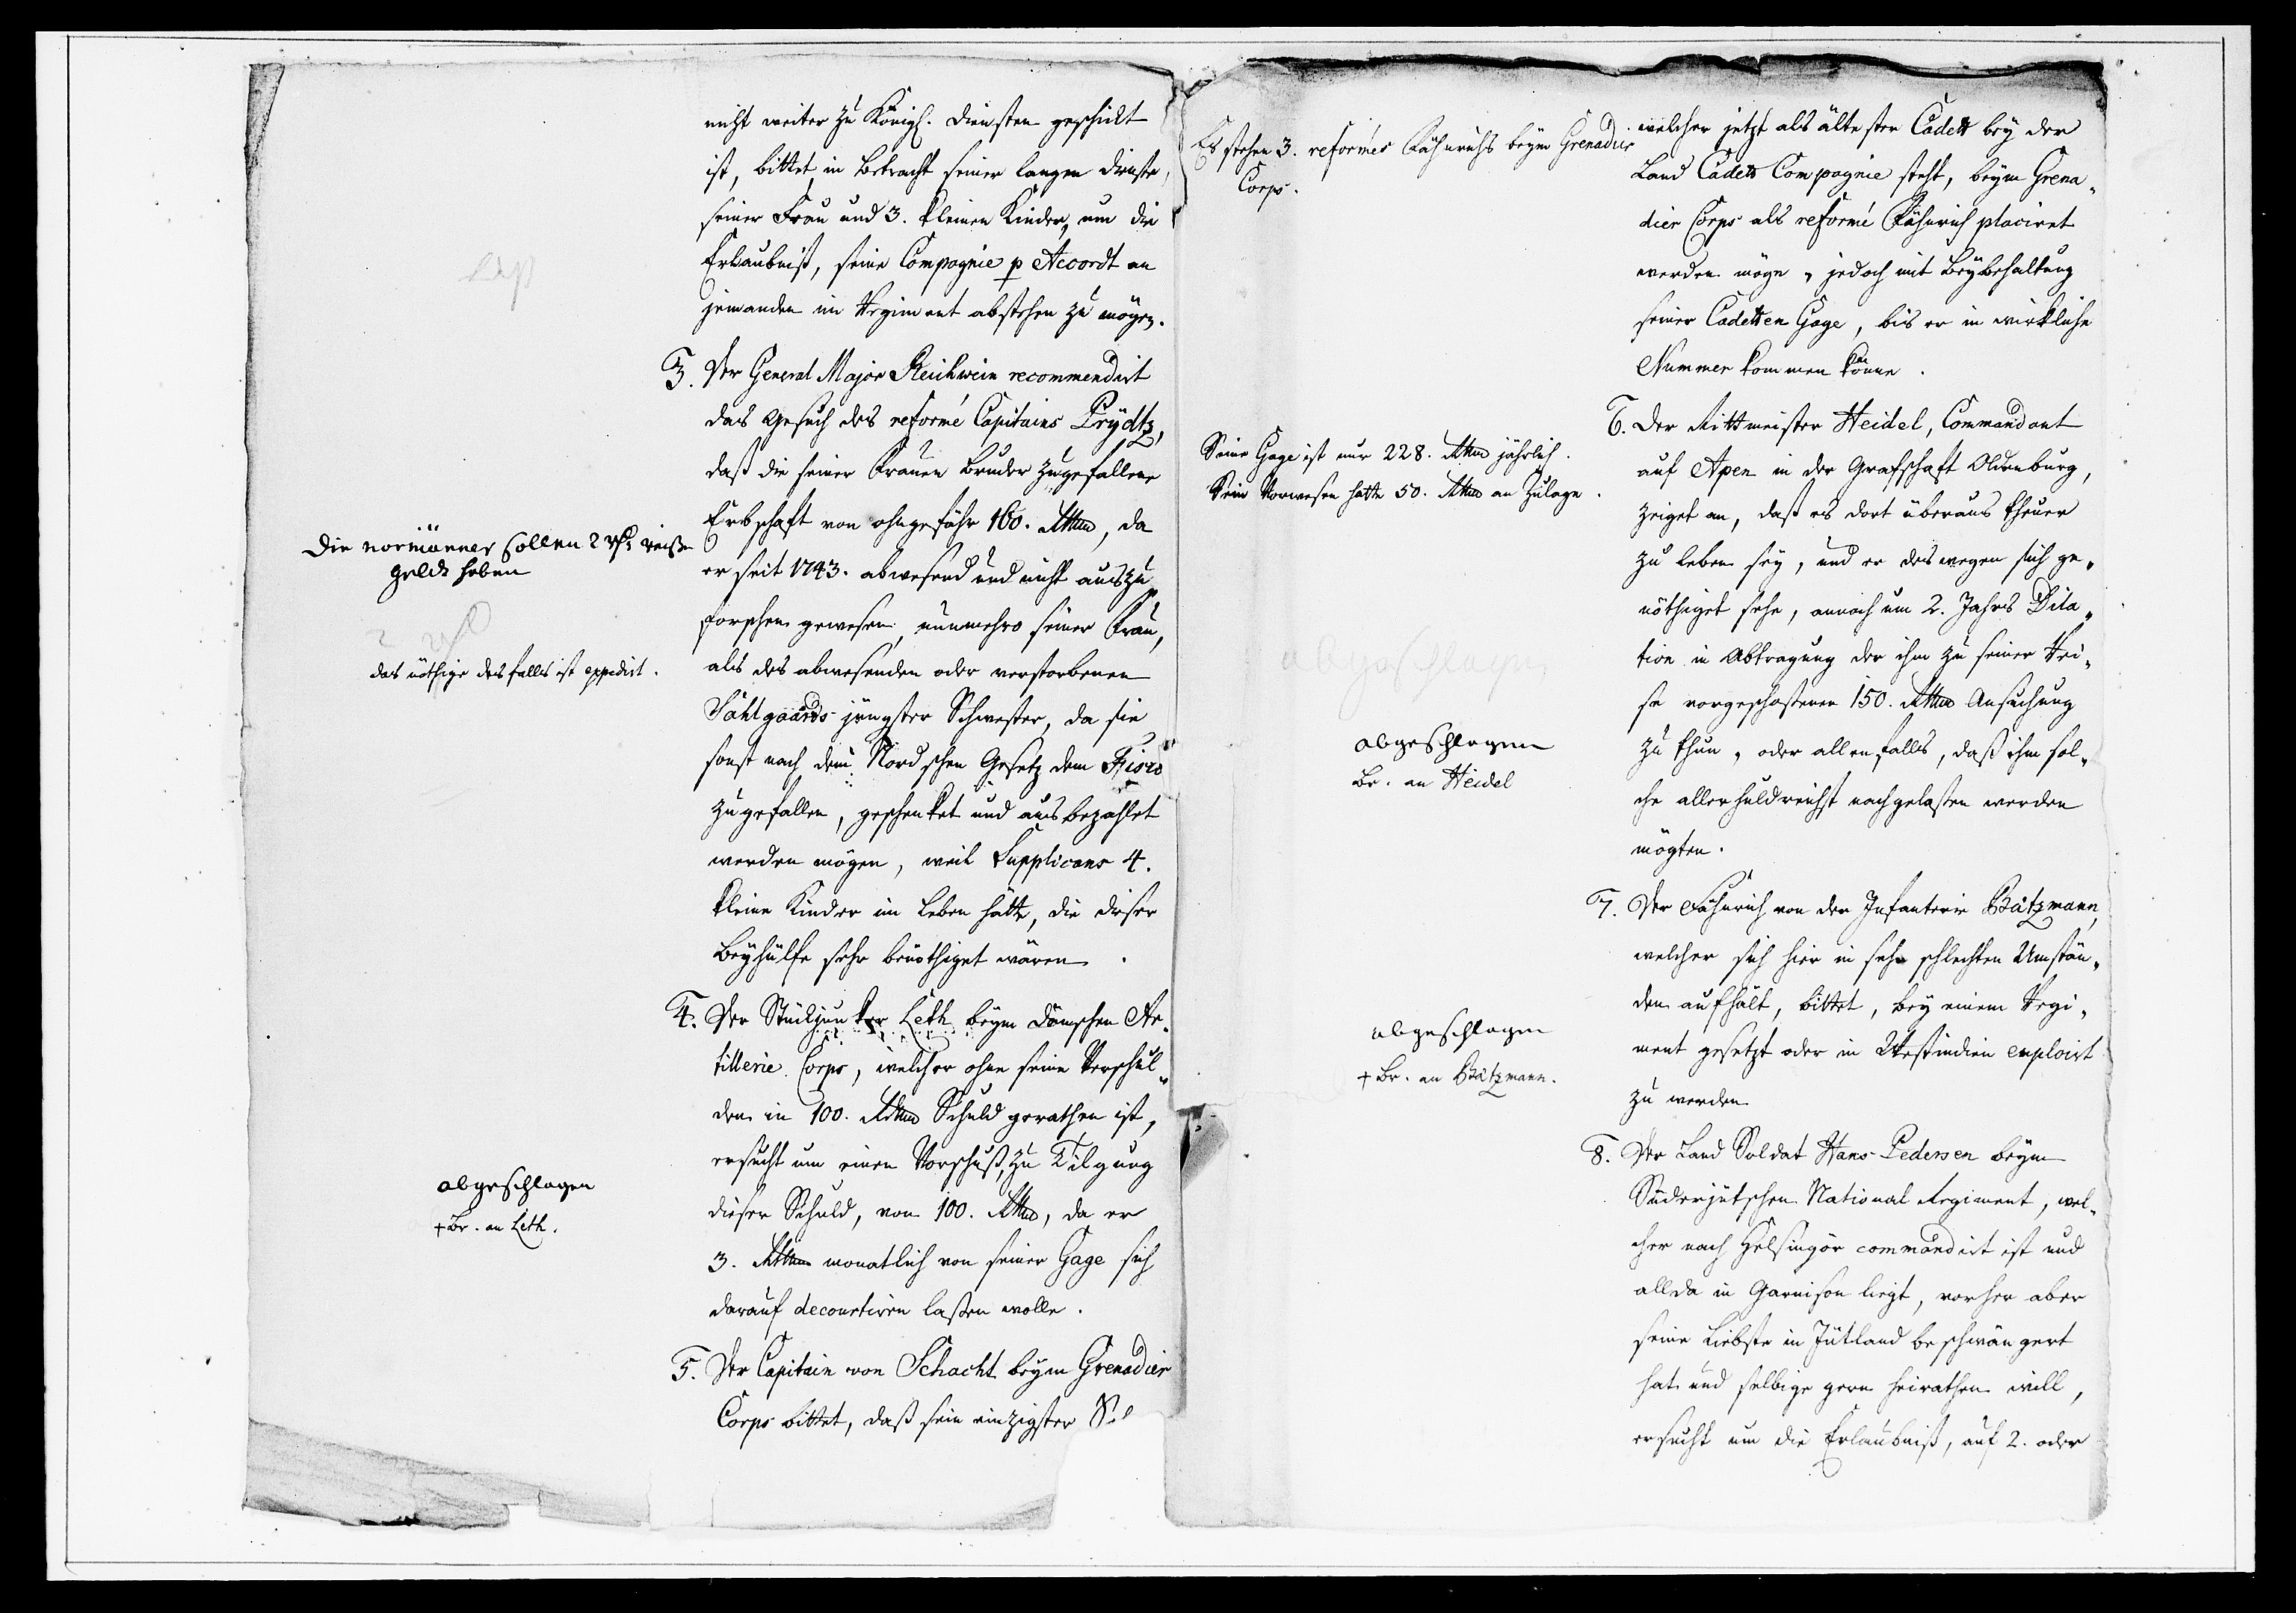 nicht weiter zu Königl. Diensten geschickt
ist, bittet in Betracht seiner langen Dienste,
seiner Frau und 3. kleinen Kinder, um die
Erlaubniß, seine Compagnie p Accordt an
jemanden im Regiment abstehen zu mögen.
3. Der General Major Reichwein recommendirt
das Gesuch des reformé Capitains Prÿdtz,
daß die seiner Frauen Bruder zugefallene
Erbschaft von ohngefähr 160. Rthlr, da
er seit 1743. abwesend und nicht auszu
forschen gewesen, nunmehro seiner Frau,
als des abwesenden oder verstorbenen
Dahlgaards jüngster Schwester, da sie
sonst nach dem Nordschen Gesetz dem Fisco
zugefallen, geschenket und ausbezahlet
werden mögen, weil Supplicans 4.
kleine Kinder im Leben hätte, die dieser
Beyhülfe sehr benöthiget wären.
Die normänner sollen 2 reise
geldt haben
das nöthige desfalls ist expedirt.
4. Der Stückjunker Leth beym Dänschen Ar-
tillerie Corps, welcher ohne seine Verschul-
den in 100. Rthlr Schuld gerathen ist,
ersucht um einen Vorschuß, zu Tilgung
dieser Schuld, von 100. Rthlr, da er
3. Rthlr monatlich von seiner Gage sich
darauf decourtiren laßen wolle.
abgeschlagen
+ Br. an Leth.
5. Der Capitain von Schacht beym Grenadier
Corps bittet, daß sein einzigster
Es stehen 3. reformés Fähnrichs beym Grenadier
Corps.
welcher jetzt als ältester Cadett bey der
Land Cadett Compagnie steht, beym Grena-
dier Corps als reformé Fähnrich placiret
werden möge, jedoch mit Beybehaltung
seiner Cadetten Gage, bis er in wirkliche
Nummer kommen könne.
6. Der Rittmeister Heidel, Commandant
auf Apen in der Grafschaft Oldenburg,
zeiget an, daß es dort überaus theuer
zu leben sey, und er deswegen sich ge-
nöthiget sehe, annoch um 2. Jahrs Dila-
tion in Abtragung der ihm zu seiner Rei-
se vorgeschoßenen 150. Rthlr Ansuchung
zu thun, oder allenfalls, daß ihm sol-
che allerhuldreichst nachgelaßen werden
mögten.
Seine Gage ist nur 228. Rthlr jährlich.
Sein Vorwesen hatte 50. Rthlr an Zulage.
abgeschlagen
abgeschlagen
Br. an Heidel
7. Der Fähnrich von der Infanterie Bätzmann,
welcher sich hier in sehr schlechten Umstän-
den aufhält, bittet, bey einem Regi-
ment gesetzt oder in Westindien emploirt
zu werden
abgeschlagen
+ Br. an Bätzmann.
8. Der Land Soldat Hans Pedersen beym
Süderjütschen National Regiment, wel-
cher nach Helsingör commandirt ist und
allda in Garnison liegt, vorher aber
seine Liebste in Jütland beschwängert
hat und selbige gern heirathen will,
ersucht um die Erlaubniß, auf 2. oder